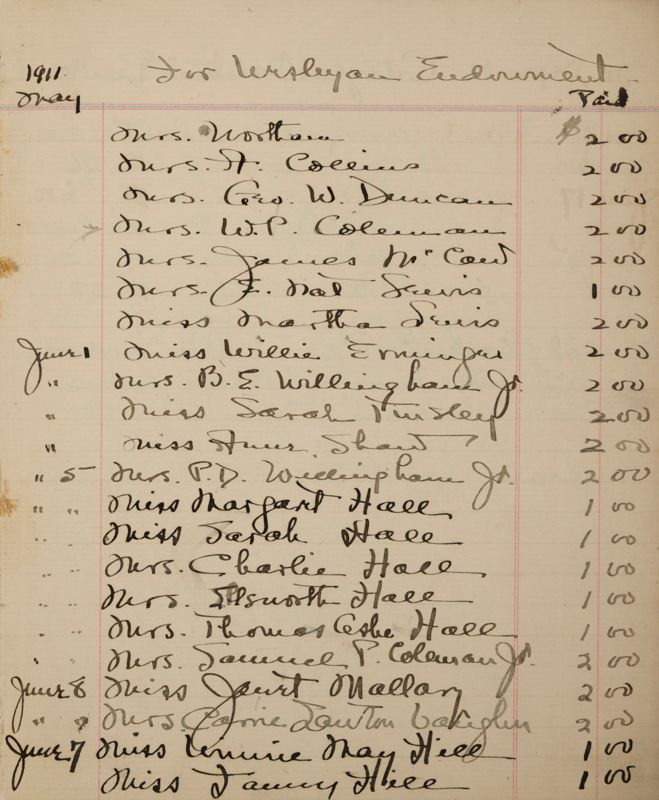 1911 For Wesleyan Endowment
May Paid
Mrs. Wortham $ 2 00
Mrs. A. Collins 2 00
Mrs. Geo. W. Duncan 2 00
Mrs. W.P. Coleman 2 00
Mrs. James McCaw 2 00
Mrs. F. Nat Lewis 1 00
Miss Martha Lewis 2 00
June 1 Miss Willie Erminger 2 00
" Mrs. B. E. Willingham Jr. 2 00
" Miss Sarah Tinsley 2 00
" Miss Anne Shaw 2 00
" 5 Mrs. P.D. Willingham Jr. 2 00
" " Miss Margart Hall 1 00
" " Miss Sarah Hall 1 00
" " Mrs. Charlie Hall 1 00
" " Mrs. Ellsworth Hall 1 00
" " Mrs. Thomas Cobb Hall 1 00
" " Mrs. Samuel P. Coleman Jr. 2 00
June 8 Miss Janet Mallary 2 00
" " Mrs. Carrie Lawton Vaughn 2 00
June 7 Miss Winnie May Hill 1 00
Miss Fanny Hill 1 00